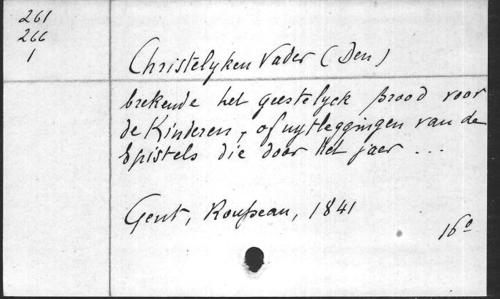 261
266
1
Christelyken Vader (Den)
brekende het geestelyck brood voor
de Kinderen, of uytleggingen van de
Epistels die door het jaer ...
Gent, Rousseau, 1841
16º